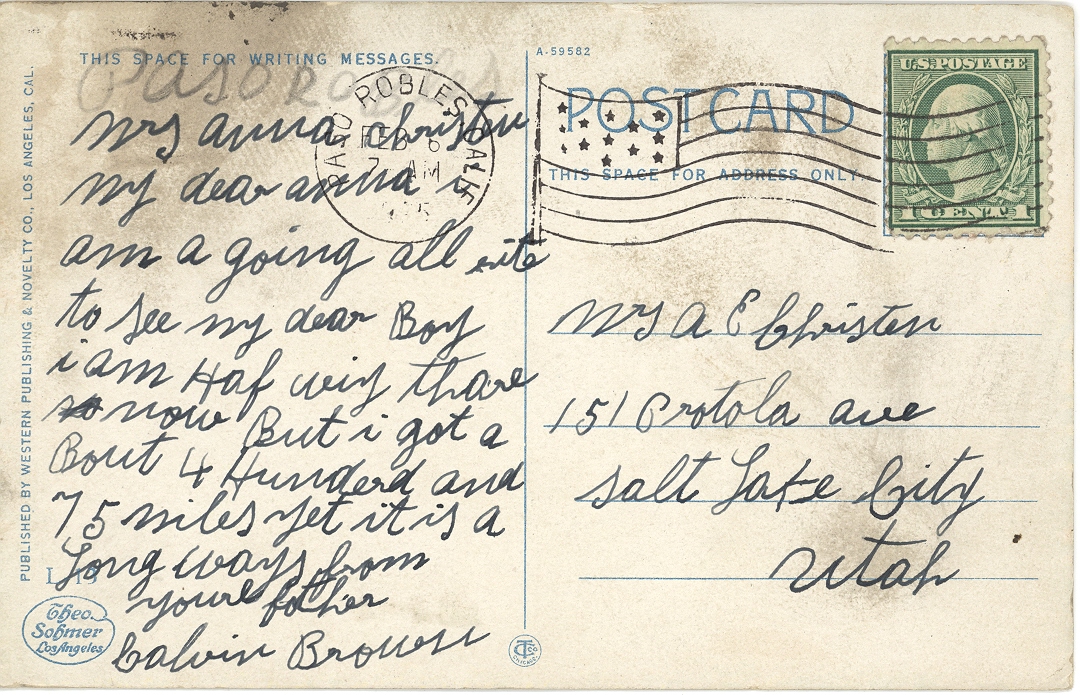 THIS SPACE FOR WRITING MESSAGES.
A-59582
U.S. POSTAGE
1 CENT 1
POST CARD
THIS SPACE FOR ADDRESS ONLY.
PASO ROBLES CALIF
FEB 6
7 AM
Pasorobles
mrs anna Christen
my dear anna i
am a going all rite
to see my dear Boy
i am Haf wiy thare
now But i got a
Bout 4 Hunderd and
75 miles yet it is a
Long ways from
youre father
Calvin Browen
Mrs A E Christen
151 Protola ave
Salt Lake City
Utah
PUBLISHED BY WESTERN PUBLISHING & NOVELTY CO., LOS ANGELES, CAL.
Theo.
Sohmer
Los Angeles
CHICAGO